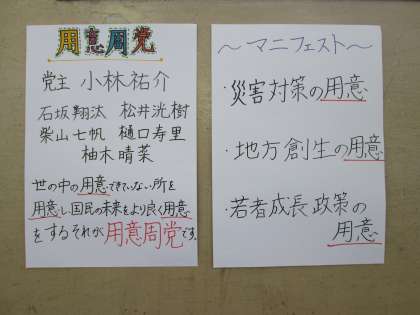 用意周党
党主 小林祐介
石坂翔汰 松井洸樹
柴山七帆 樋口寿里
柚木晴菜
世の中の用意できていない所を
用意し国民の未来をより良く用意
をするそれが用意周党です。
～マニフェスト～
・災害対策の用意
・地方創生の用意
・若者成長政策の
用意